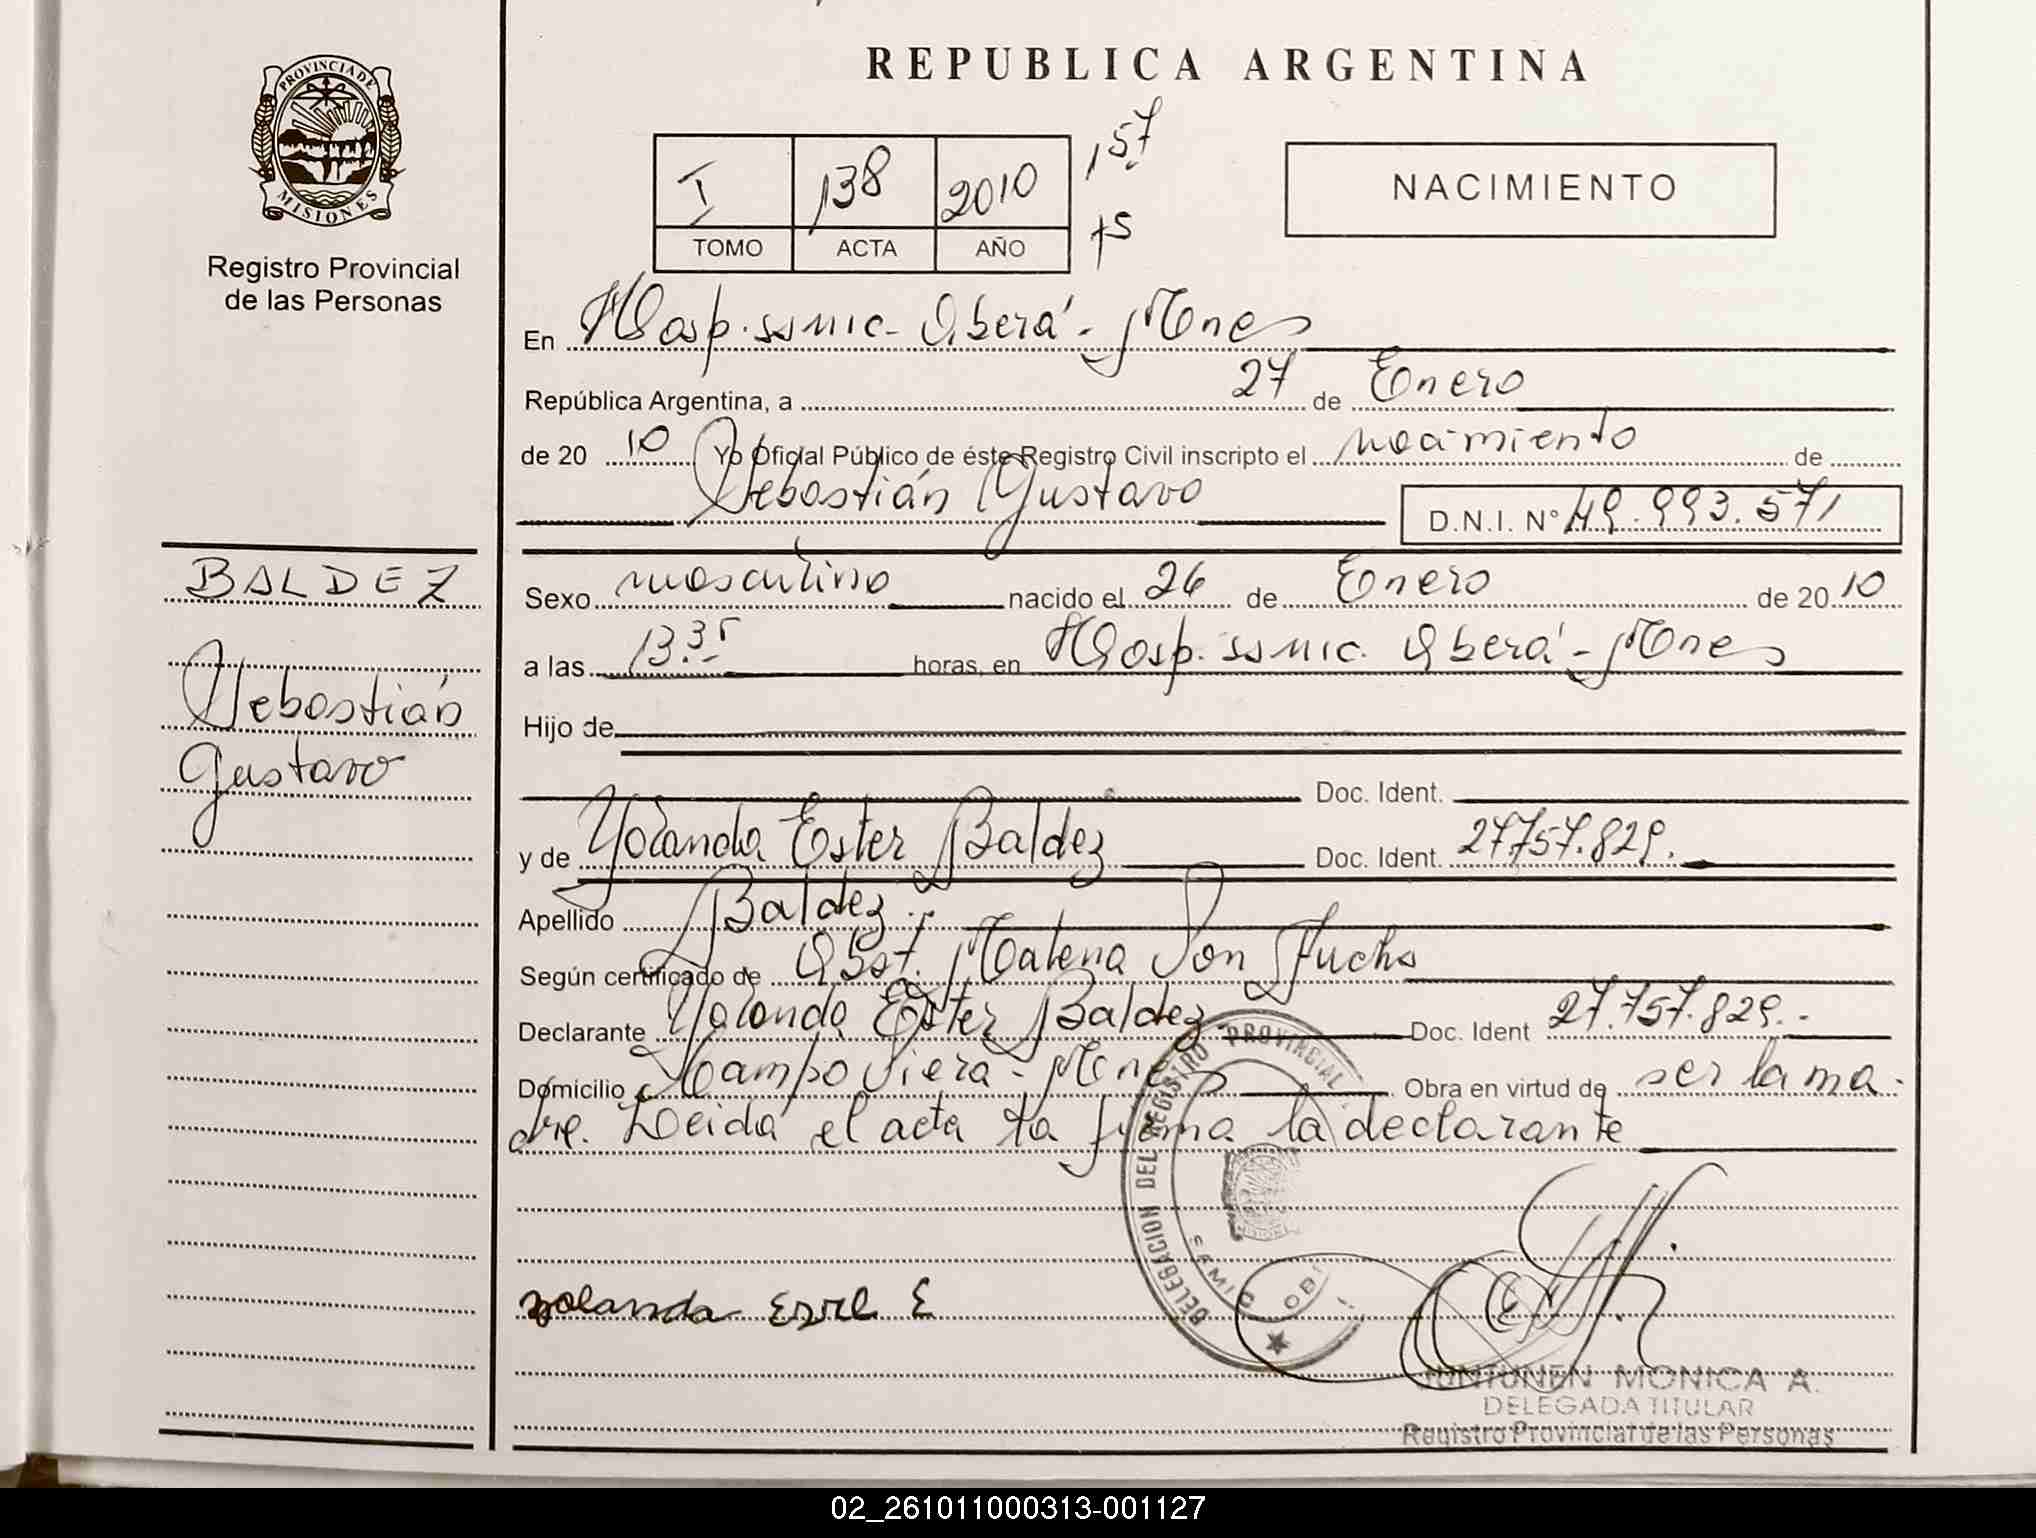 PROVINCIA DE
MISIONES
Registro Provincial
de las Personas
BALDEZ
Sebastián
Gustavo
REPUBLICA ARGENTINA
I 138 2010 157
TOMO ACTA AÑO
NACIMIENTO
En Hosp. ssmic - Oberá - Mnes
República Argentina, a 27 de Enero
de 20 10 Yo Oficial Público de éste Registro Civil inscripto el nacimiento de
Sebastián Gustavo D.N.I. N° 49.993.571
Sexo masculino nacido el 26 de Enero de 20 10
a las 13.35 horas, en Hosp. ssmic. Oberá - Mnes
Hijo de
Doc. Ident.
y de Yolanda Ester Baldez Doc. Ident. 27757.829.
Apellido Baldez
Según certificado de Obst. Malena Von Fuchs
Declarante Yolanda Ester Baldez Doc. Ident 27.757.829.-
Domicilio Campo Viera - Mnes Obra en virtud de ser la ma-
dre. Leida el acta la firma la declarante
DELEGACION DEL REGISTRO PROVINCIAL
yolanda E
JUNTUNEN MONICA A.
DELEGADA TITULAR
Registro Provincial de las Personas
02_261011000313-001127